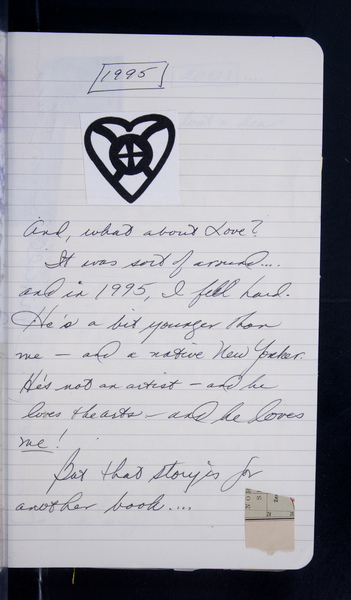 1995
And, what about Love?
It was sort of around....
and in 1995, I fell hard.
He's a bit younger than
me — and a native New Yorker.
He's not an artist — and he
loves the arts — and he loves
me!
But that story is for
another book....